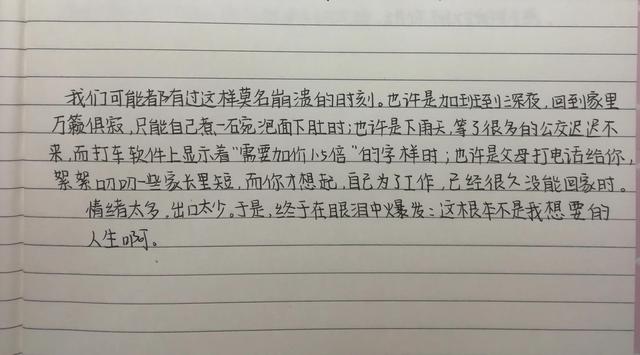 我们可能都有过这样莫名崩溃的时刻。也许是加班到深夜,回到家里
万籁俱寂,只能自己煮一碗泡面下肚时;也许是下雨天,等了很多的公交迟迟不
来,而打车软件上显示着“需要加价1.5倍”的字样时;也许是父母打电话给你,
絮絮叨叨一些家长里短,而你才想起,自己为了工作,已经很久没能回家时。
情绪太多,出口太少。于是,终于在眼泪中爆发:这根本不是我想要的
人生啊。